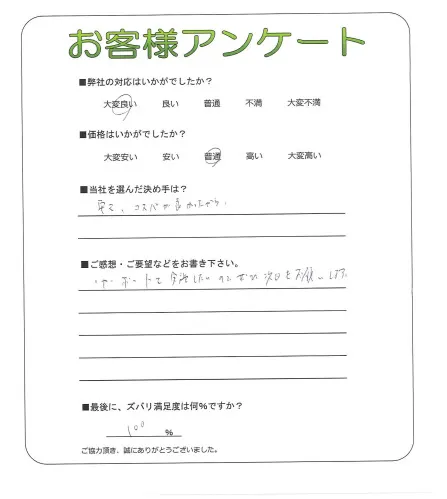 お客様アンケート
■弊社の対応はいかがでしたか?
大変良い 良い 普通 不満 大変不満
■価格はいかがでしたか?
大変安い 安い 普通 高い 大変高い
■当社を選んだ決め手は?
コスパが良かったから
■ご感想・ご要望などをお書き下さい。
次回もお願いします
■最後に、ズバリ満足度は何%ですか?
100 %
ご協力頂き、誠にありがとうございました。